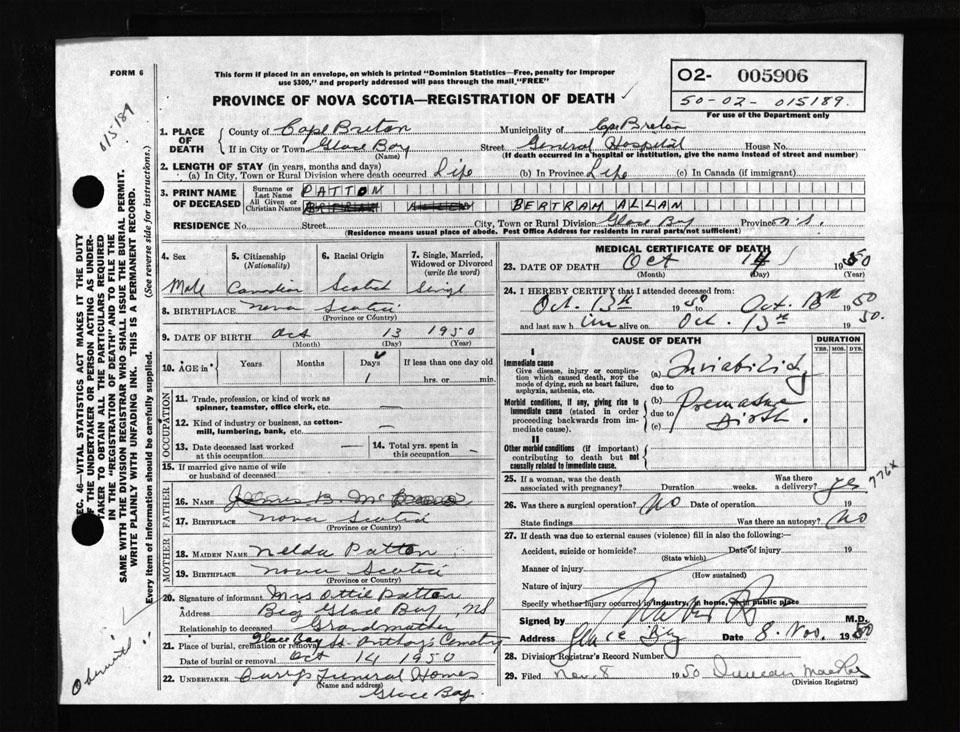 FORM 6
This form if placed in an envelope, on which is printed "Dominion Statistics—Free, penalty for improper
use $300," and properly addressed will pass through the mail "FREE"
PROVINCE OF NOVA SCOTIA—REGISTRATION OF DEATH
02- 005906
50-02- 015189.
For use of the Department only
015189
1. PLACE OF DEATH County of Cape Breton Municipality of Cape Breton
If in City or Town Glace Bay Street General Hospital House No.
(Name) (If death occurred in a hospital or institution, give the name instead of street and number)
2. LENGTH OF STAY (in years, months and days)
(a) In City, Town or Rural Division where death occurred Life (b) In Province Life (c) In Canada (if immigrant)
3. PRINT NAME OF DECEASED Surname or Last Name PATTON
All Given or Christian Names BERTRAM ALLAN
RESIDENCE No. Street City, Town or Rural Division Glace Bay Province N.S.
(Residence means usual place of abode. Post Office Address for residents in rural parts not sufficient)
SEC. 46—VITAL STATISTICS ACT MAKES IT THE DUTY
OF THE UNDERTAKER OR PERSON ACTING AS UNDER-
TAKER TO OBTAIN ALL THE PARTICULARS REQUIRED
IN THE "REGISTRATION OF DEATH" AND TO FILE THE
SAME WITH THE DIVISION REGISTRAR WHO SHALL ISSUE THE BURIAL PERMIT.
WRITE PLAINLY WITH UNFADING INK. THIS IS A PERMANENT RECORD.
Every item of information should be carefully supplied. (See reverse side for instructions.)
4. Sex 5. Citizenship (Nationality) 6. Racial Origin 7. Single, Married, Widowed or Divorced (write the word)
Male Canadian Scotch Single
8. BIRTHPLACE Nova Scotia
(Province or Country)
9. DATE OF BIRTH Oct 13 1950
(Month) (Day) (Year)
10. AGE in Years Months Days If less than one day old
1 hrs. or min.
OCCUPATION
11. Trade, profession, or kind of work as
spinner, teamster, office clerk, etc. —
12. Kind of industry or business, as cotton-
mill, lumbering, bank, etc. —
13. Date deceased last worked at this occupation — 14. Total yrs. spent in this occupation —
15. If married give name of wife
or husband of deceased
FATHER
16. NAME
17. BIRTHPLACE Nova Scotia
(Province or Country)
MOTHER
18. MAIDEN NAME Nelda Patton
19. BIRTHPLACE Nova Scotia
(Province or Country)
20. Signature of informant Mrs Ottie Patton
Address Big Glace Bay NS
Relationship to deceased Grandmother
21. Place of burial, cremation or removal Glace Bay St. Anthony's Cemetry
Date of burial or removal Oct 14 1950
22. UNDERTAKER Curry's Funeral Homes
(Name and address)
Glace Bay.
MEDICAL CERTIFICATE OF DEATH
23. DATE OF DEATH Oct 1950
(Month) (Day) (Year)
24. I HEREBY CERTIFY that I attended deceased from
Oct. 13th 1950 to Oct. 1950
and last saw him alive on Oct. 13th 1950.
CAUSE OF DEATH DURATION
YRS. MOS. DYS.
I
Immediate cause
Give disease, injury or complica-
tion which caused death, NOT the
mode of dying, such as heart failure,
asphyxia, asthenia, etc.
(a) Inviability
due to
Morbid conditions, if any, giving rise to
immediate cause (stated in order
proceeding backwards from im-
mediate cause).
(b) Premature
due to
(c) Birth.
II
Other morbid conditions (if important)
contributing to death but not
causally related to immediate cause.
25. If a woman, was the death associated with pregnancy? Duration weeks. Was there a delivery? yes
776x
26. Was there a surgical operation? No Date of operation 19
State findings Was there an autopsy? No
27. If death was due to external causes (violence) fill in also the following:—
Accident, suicide or homicide? Date of injury 19
(State which)
Manner of injury
(How sustained)
Nature of injury
Specify whether injury occurred in industry, in home, or in public place
Signed by M.D.
Address Glace Bay Date 8. Nov. 1950
28. Division Registrar's Record Number
29. Filed Nov. 8 1950 Duncan
(Division Registrar)